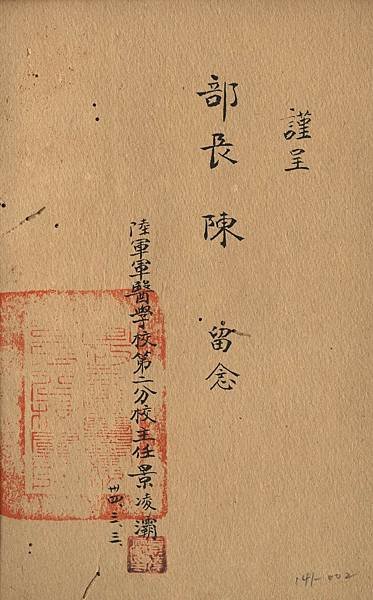 謹呈
部長陳 留念
陸軍軍醫學校第二分校主任景凌灞
卅四、三、三、
141-002